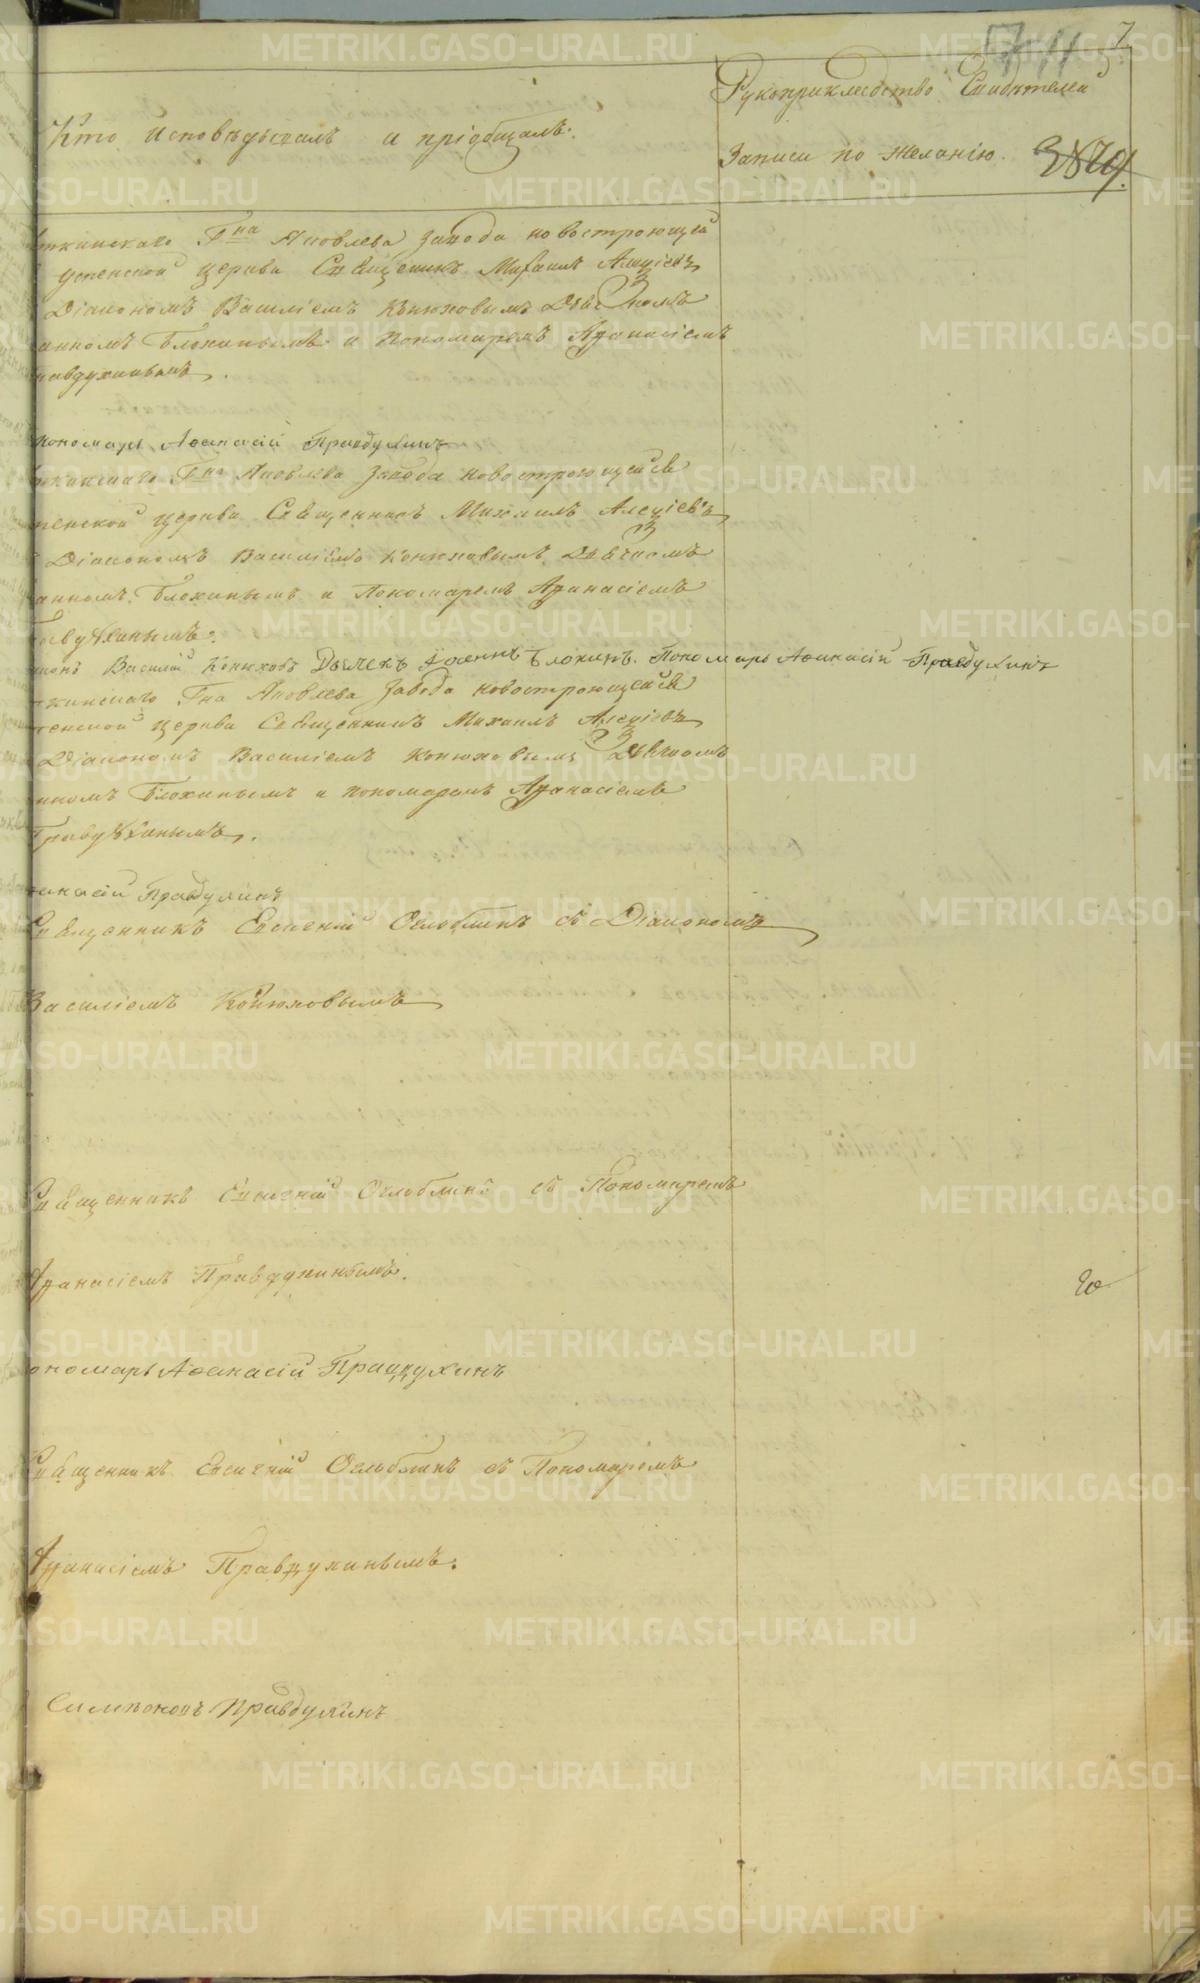 7
711
Рукоприкладство Свидѣтелей
Кто исповѣдывалъ и пріобщалъ.
Записи по желанію. 3870.
ткинскаго Гна Яковлева завода новостроющей
успенской церкви Священикъ Михаилъ Алеціевъ
З Діакономъ Василіемъ Конюховымъ Дьячкомъ
анномъ Блохинымъ и Пономаремъ Афанасіемъ
равдухинымъ.
пономарь Аѳанасій Правдухинъ
ткинскаго Гна Яковлева завода новостроющейся
пенской церкви Священникъ Михаилъ Алецієвъ
З Діакономъ Василіемъ Конюховымъ Дьячкомъ
анномъ Блохинымъ и Пономаремъ Афанасіемъ
Правдухинымъ.
конъ Василій Конюховъ Дьячекъ Іоаннъ Блохинъ. Пономарь Аѳанасій Правдухинъ
ткинскаго Гна Яковлева завода новостроющейся
пенской церкви Священникъ Михаилъ Алецієвъ
З Діакономъ Василіемъ Конюховымъ Дьячкомъ
нномъ Блохинымъ и пономаремъ Афанасіемъ
Правдухинымъ.
анасій Правдухинъ
Священникъ Евгеній Оглоблинъ съ Діакономъ
Василіемъ Конюховымъ
Священникъ Евгеній Оглоблинъ съ Пономаремъ
Афанасіемъ Правдухинымъ.
ономарь Аѳанасій Правдухинъ
Священникъ Евгеній Оглоблинъ съ Пономаромъ
Афанасіемъ Правдухинымъ.
Правдухинъ
METRIKI.GASO-URAL.RU